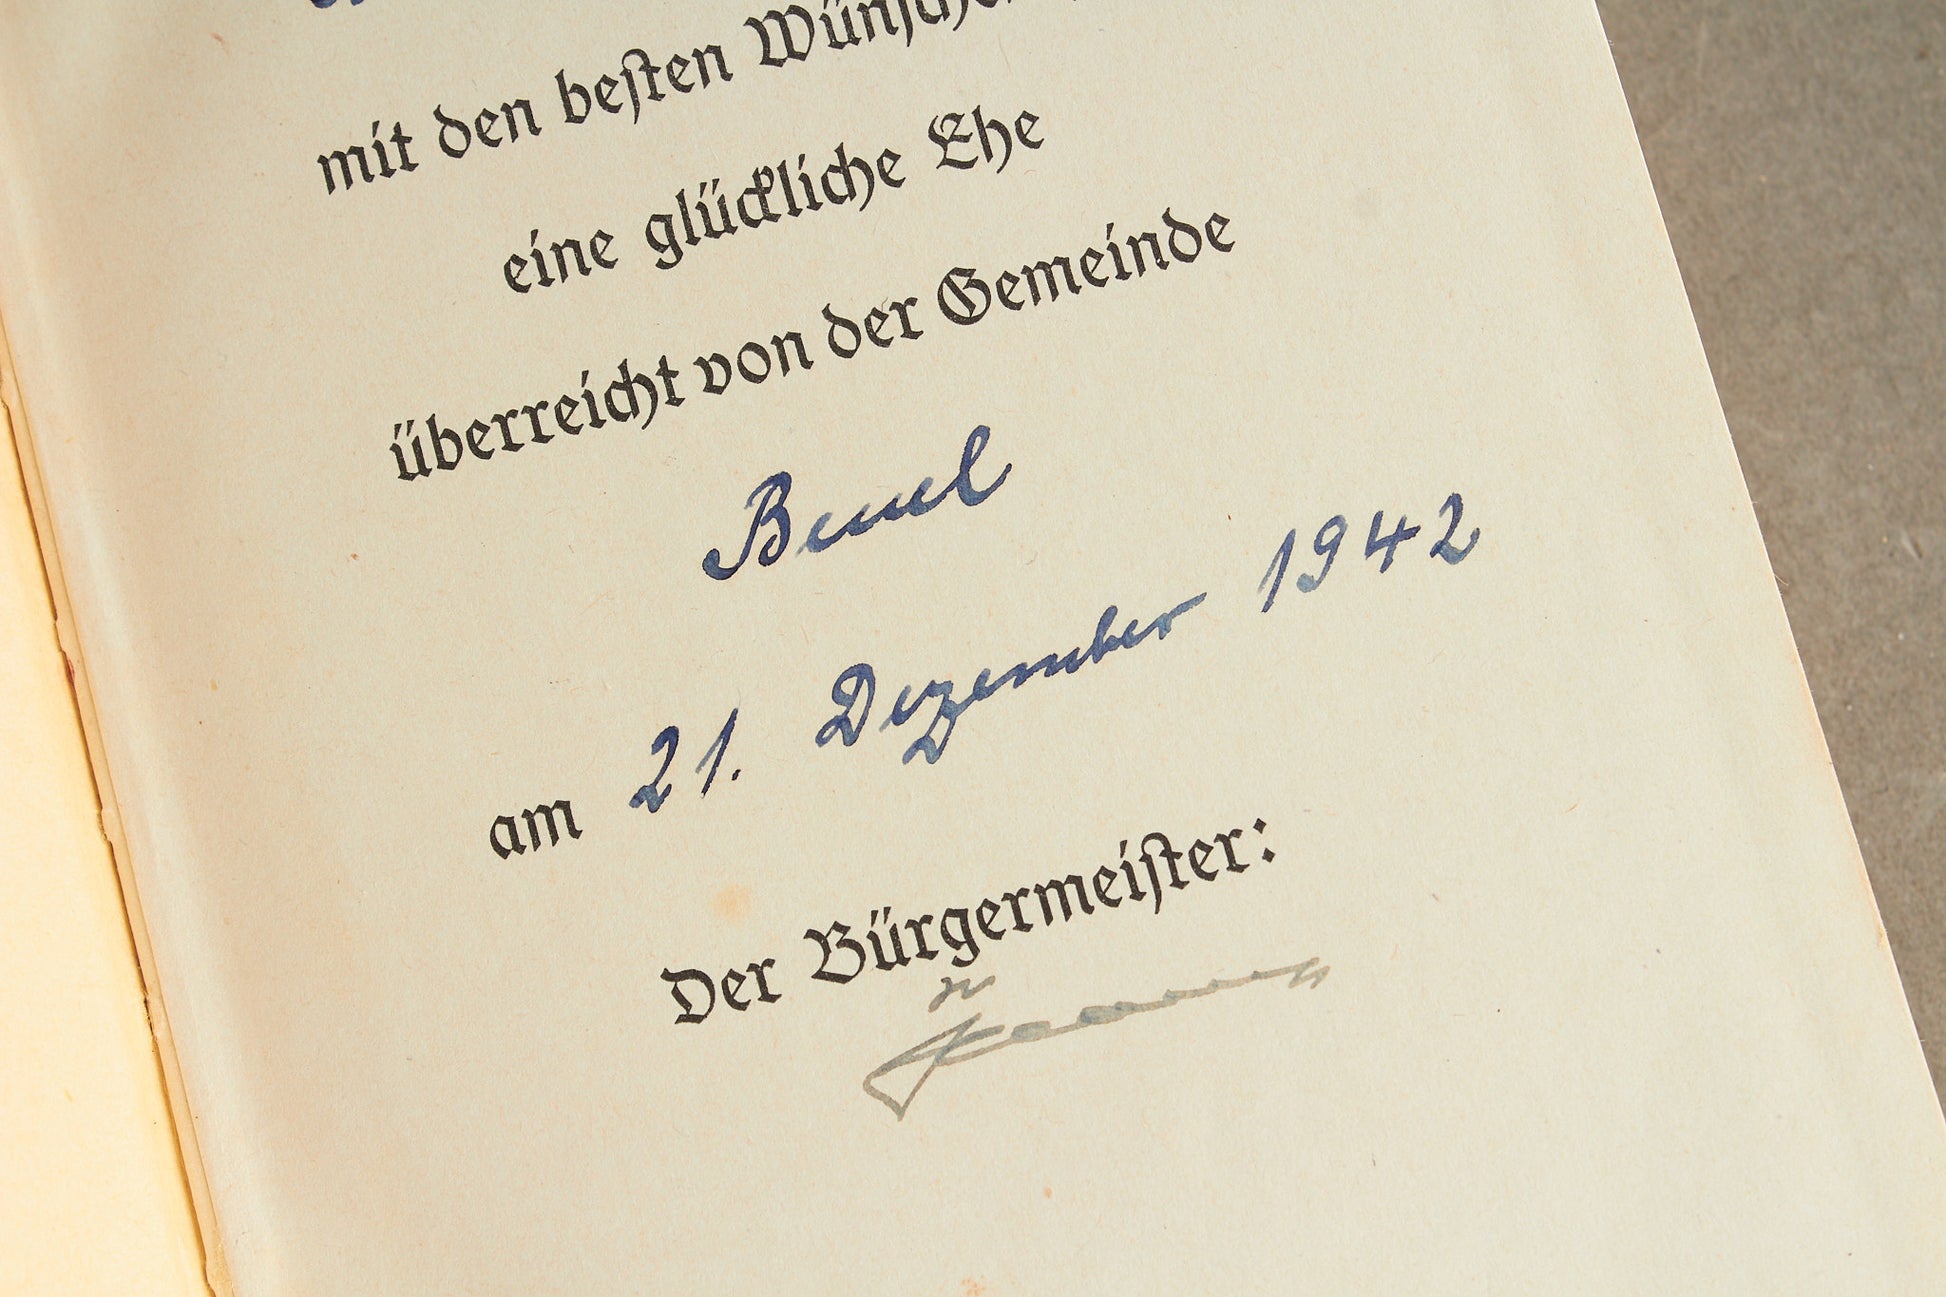 mit den besten Wünschen
eine glückliche Ehe
überreicht von der Gemeinde
Beuel
am 21. Dezember 1942
Der Bürgermeister: